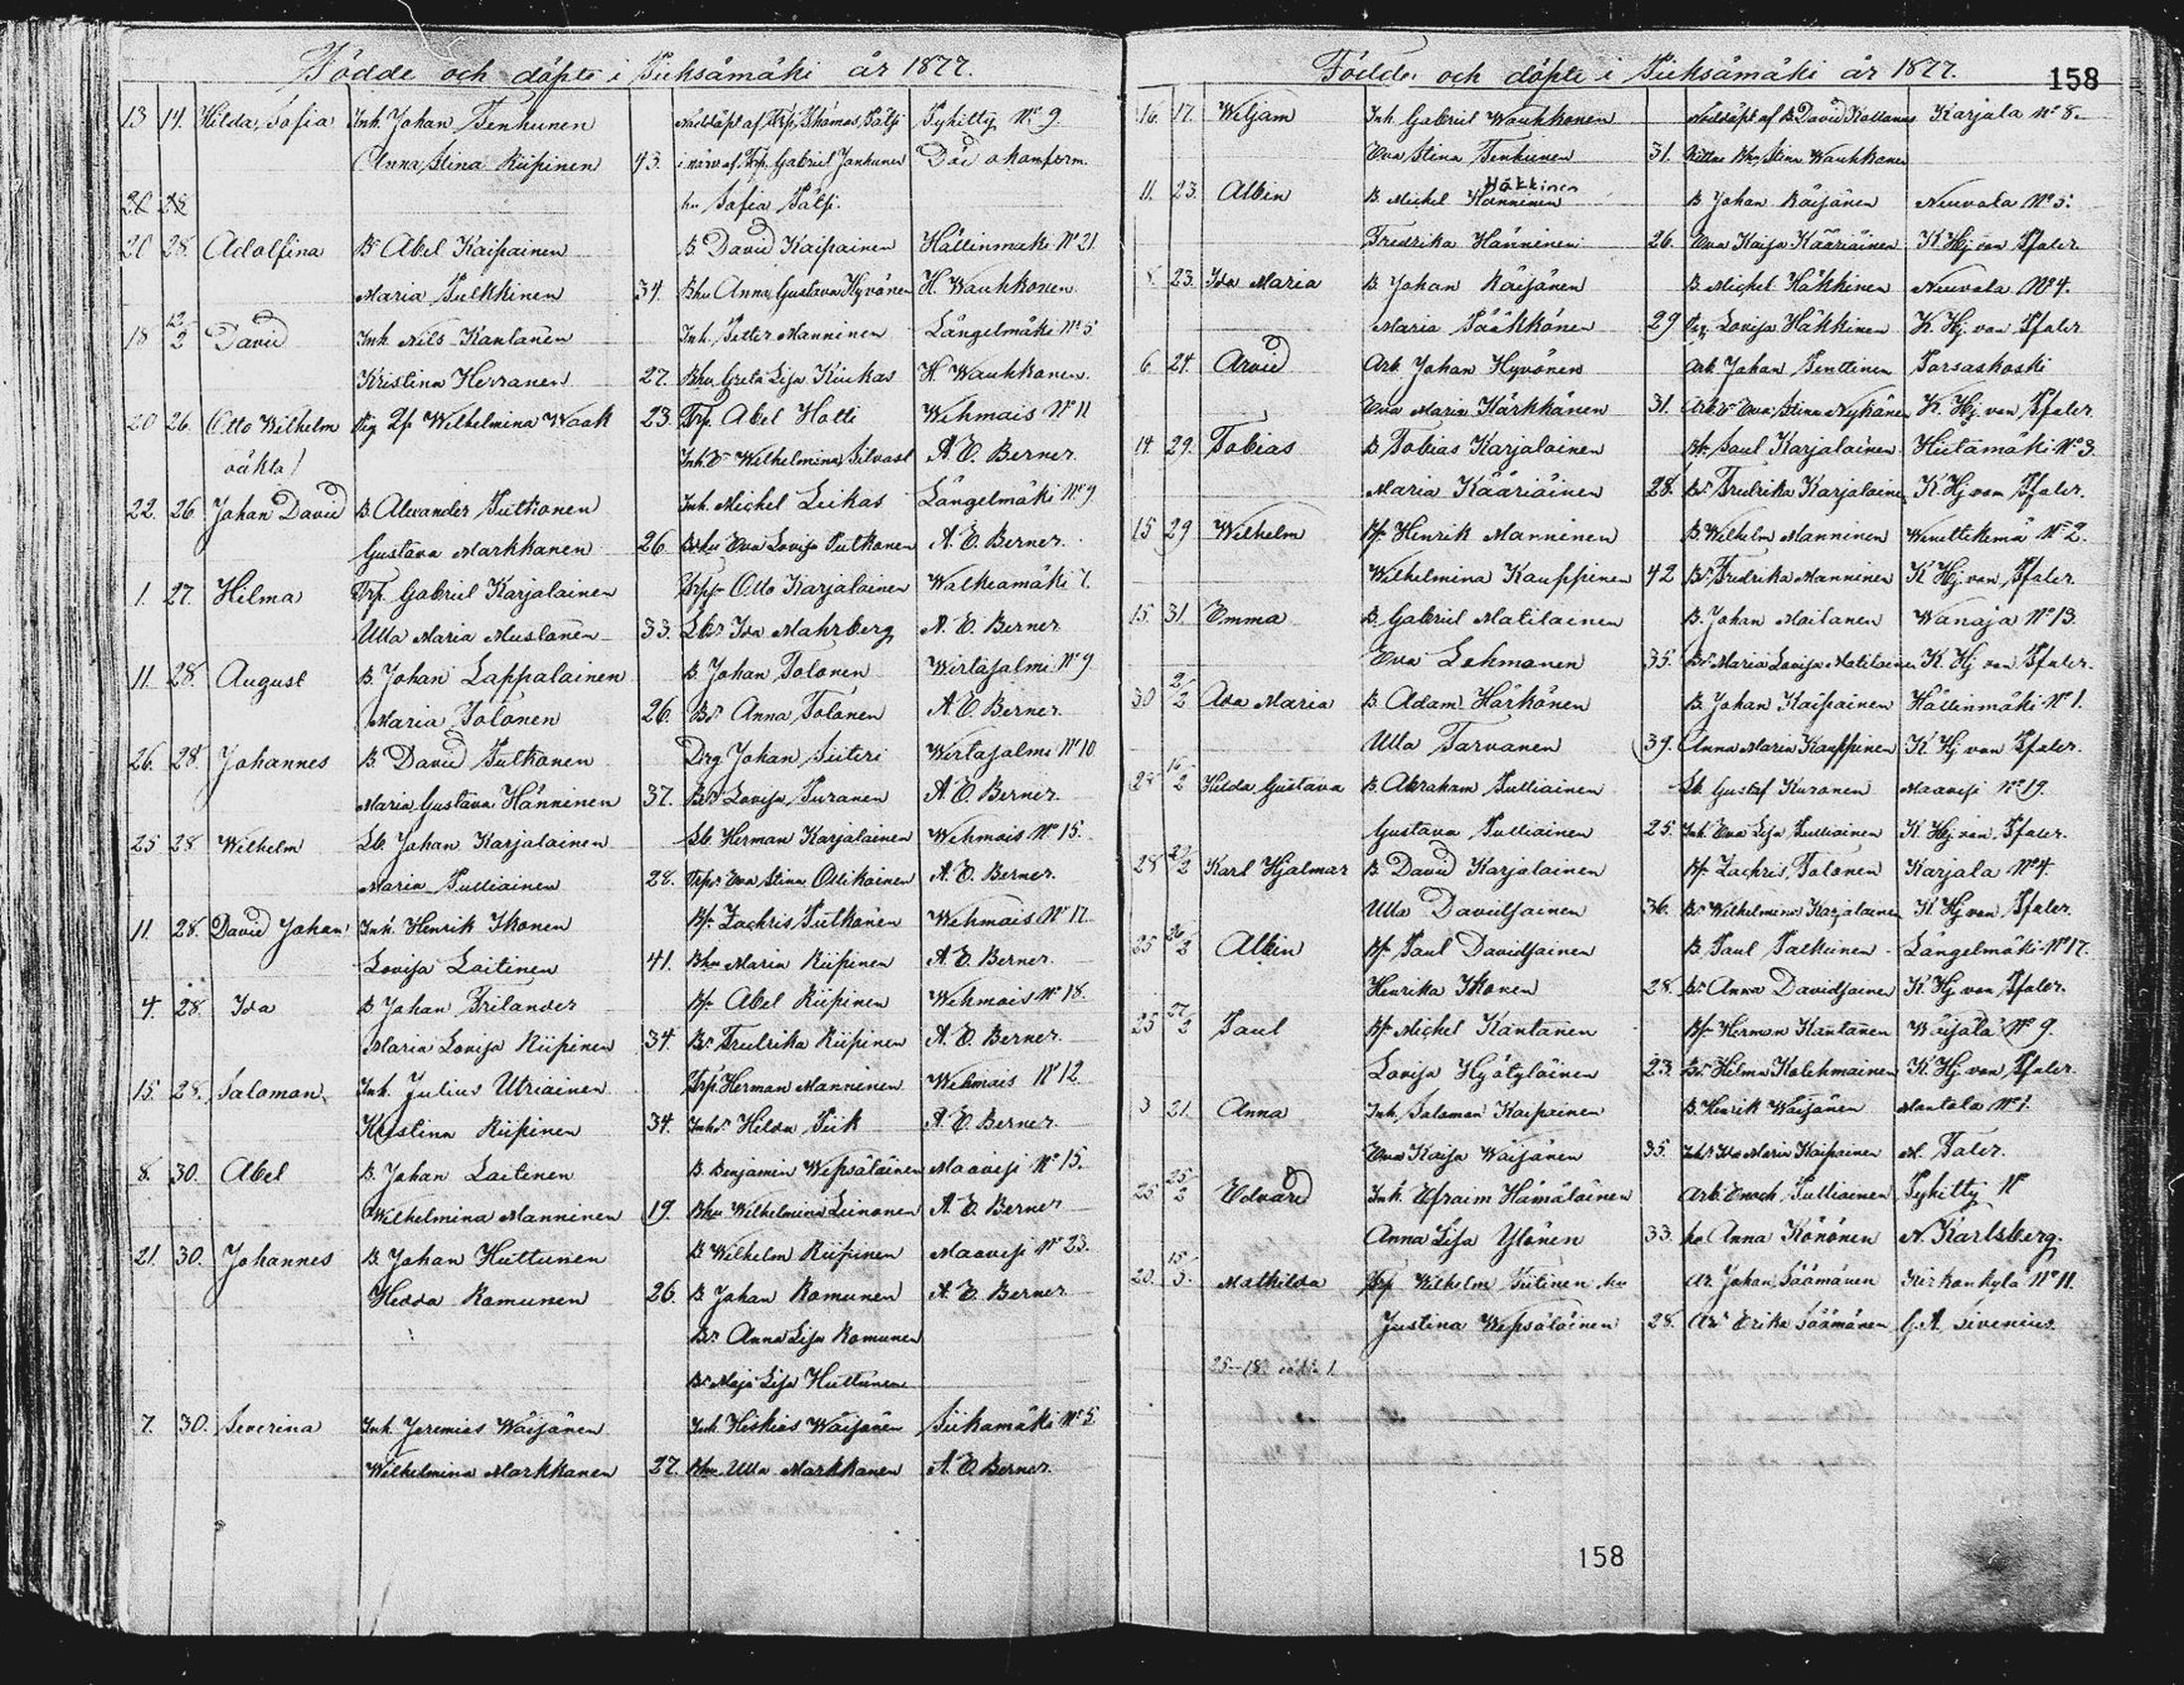 Födde och döpte i Pieksämäki år 1877.
13 14. Hilda Sofia Inh. Johan Tenhunen Nöddöpt af Trp. Thomas Pätsi Pyhitty No 9
Anna Stina Riipinen 43. i närv. af Trp. Gabriel Janhunen Död o konform.
20 28 hu Sofia Pätsi.
20 28. Adolfina B. Abel Kaipainen B. David Kaipainen Hällinmäki No 21.
Maria Pulkkinen 34. Bhu Anna Gustava Hyvönen H. Wauhkonen.
18 12/2 David Inh. Nils Kantanen Inh. Petter Manninen Längelmäki No 5
Kristina Herranen 27. Bhu. Greta Lisa Kiukas H. Wauhkonen.
20 26. Otto Wilhelm Pig. Wilhelmina Waak 23. Trp. Abel Hatti Wehmais No 11
oäkta! Inh. Wilhelmina Silvast A. E. Berner.
22. 26. Johan David B. Alexander Putkonen Inh. Michel Leikas Längelmäki No 9
Gustava Markkanen 26 Bhu Eva Lovisa Putkonen A. E. Berner.
1. 27. Hilma Trp. Gabriel Karjalainen Trps. Otto Karjalainen Walkeamäki 7.
Ulla Maria Mustonen 33. Lbdr Ida Mahrberg A. E. Berner
11. 28. August B. Johan Lappalainen B. Johan Tolonen Wirtasalmi No 9
Maria Tolonen 26. Bdr Anna Tolonen A. E. Berner.
26. 28. Johannes B. David Putkonen Drg Johan Siiteri Wirtasalmi No 10
Maria Gustava Hänninen 37. Bdr Lovisa Puranen A. E. Berner.
25 28 Wilhelm Lb. Johan Karjalainen Lb. Herman Karjalainen Wehmais No 15.
Maria Pulliainen 28. Trpdr Eva Stina Ollikainen A. E. Berner.
11. 28. David Johan Inh. Henrik Ikonen Bs. Zachris Putkonen Wehmais No 17
Lovisa Laitinen 41. Bhu Maria Riipinen A. E. Berner.
4. 28. Ida B. Johan Frilander Bs. Abel Riipinen Wehmais No 18.
Maria Lovisa Riipinen 34. Bdr Fredrika Riipinen A. E. Berner
15. 28. Saloman Inh. Julius Utriainen Trp. Herman Manninen Wehmais No 12
Kristina Riipinen 34. Inhdr Hilda Piik A. E. Berner
8. 30. Abel B. Johan Laitinen B. Benjamin Wepsäläinen Maavesi No 15.
Wilhelmina Manninen 19. Bhu Wilhelmina Leinonen A. E. Berner
21. 30. Johannes B. Johan Huttunen B. Wilhelm Riipinen Maavesi No 23.
Hedda Romunen 26. B. Johan Romunen A. E. Berner
Bdr Anna Lisa Romunen
Bdr Maja Lisa Huttunen
7. 30. Severina Inh. Jeremias Wäisänen Inh. Hiskias Wäisänen Siikamäki No 5
Wilhelmina Markkanen 27. Bhu Ulla Markkanen A. E. Berner.
Födde och döpte i Pieksämäki år 1877.
158
16. 17. Wiljam Inh. Gabriel Wauhkonen Nöddöpt af B. David Kollanus Karjala No 8.
Eva Stina Tenhunen 31. Bhu Stina Wauhkonen
Häkkinen
11. 23. Albin B. Michel Hänninen B. Johan Räisänen Neuvola No 5.
Fredrika Hänninen 26. Eva Kaisa Kääriäinen K. Hj. von Pfaler
8. 23. Ida Maria B. Johan Räisänen B. Michel Häkkinen Neuvola No 4.
Maria Pääkkönen 29 Pig. Lovisa Häkkinen K. Hj. von Pfaler
6 24. Arvid Arb. Johan Hyvönen Arb. Johan Penttinen Porsaskoski
Eva Maria Kärkkänen 31. Arb. Eva Stina Nykänen K. Hj. von Pfaler
14. 29. Tobias B. Tobias Karjalainen Bs. Paul Karjalainen Hiitämäki No 3
Maria Kääriäinen 28. Bdr Fredrika Karjalainen K. Hj. von Pfaler.
15 29 Wilhelm Bs. Henrik Manninen B. Wilhelm Manninen Wenettekemä No 2.
Wilhelmina Kauppinen 42 Bdr Fredrika Manninen K. Hj. von Pfaler.
15. 31. Emma B. Gabriel Matilainen B. Johan Maitanen Wanaja No 13.
Eva Lehmonen 35. Bdr Maria Lovisa Matilainen K. Hj. von Pfaler.
30 2/2 Ada Maria B. Adam Härkönen B. Johan Kaipainen Hällinmäki No 1.
Ulla Tarvanen 39. Anna Maria Kauppinen K. Hj. von Pfaler.
28 15/2 Hilda Gustava B. Abraham Pulliainen Lb. Gustaf Kuronen Maavesi No 19.
Gustava Pulliainen 25. Inh. Eva Lisa Pulliainen K. Hj. von Pfaler.
28 22/2 Karl Hjalmar B. David Karjalainen Bs. Zachris Tolonen Karjala No 4.
Ulla Davidsainen 36. Bdr Wilhelmina Karjalainen K. Hj. von Pfaler.
25 26/2 Albin Bs. Paul Davidsainen B. Paul Parkunen Längelmäki No 17.
Henrika Ikonen 28. Bdr Anna Davidsainen K. Hj. von Pfaler.
25 27/2 Paul Bs. Michel Kantanen Bs. Herman Kantanen Wäisälä No 9.
Lovisa Hyötyläinen 23. Bdr Hilma Kolehmainen K. Hj. von Pfaler.
3 21. Anna Inh. Saloman Kaipainen B. Henrik Wäisänen Montola No 1.
Eva Kaisa Wäisänen 35. Inhdr Ida Maria Kaipainen M. Faler.
25 25/2 Edvard Inh. Efraim Hämäläinen Arb. Enoch Pulliainen Pyhitty No
Anna Lisa Ylönen 33. hu Anna Könönen N. Karlsberg.
20. 15/3. Mathilda Trp. Wilhelm Piitinen hu Ar. Johan Säämänen Kirkonkylä No 11.
Justina Wepsäläinen 28. Ardr Erika Säämänen G. A. Sivenius.
25—18. oäkta 1.
158